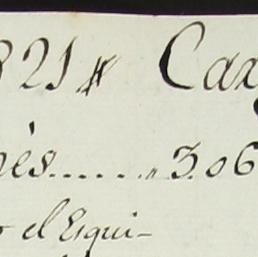 821 # Cax
nès......"3.06
r el Esqui-